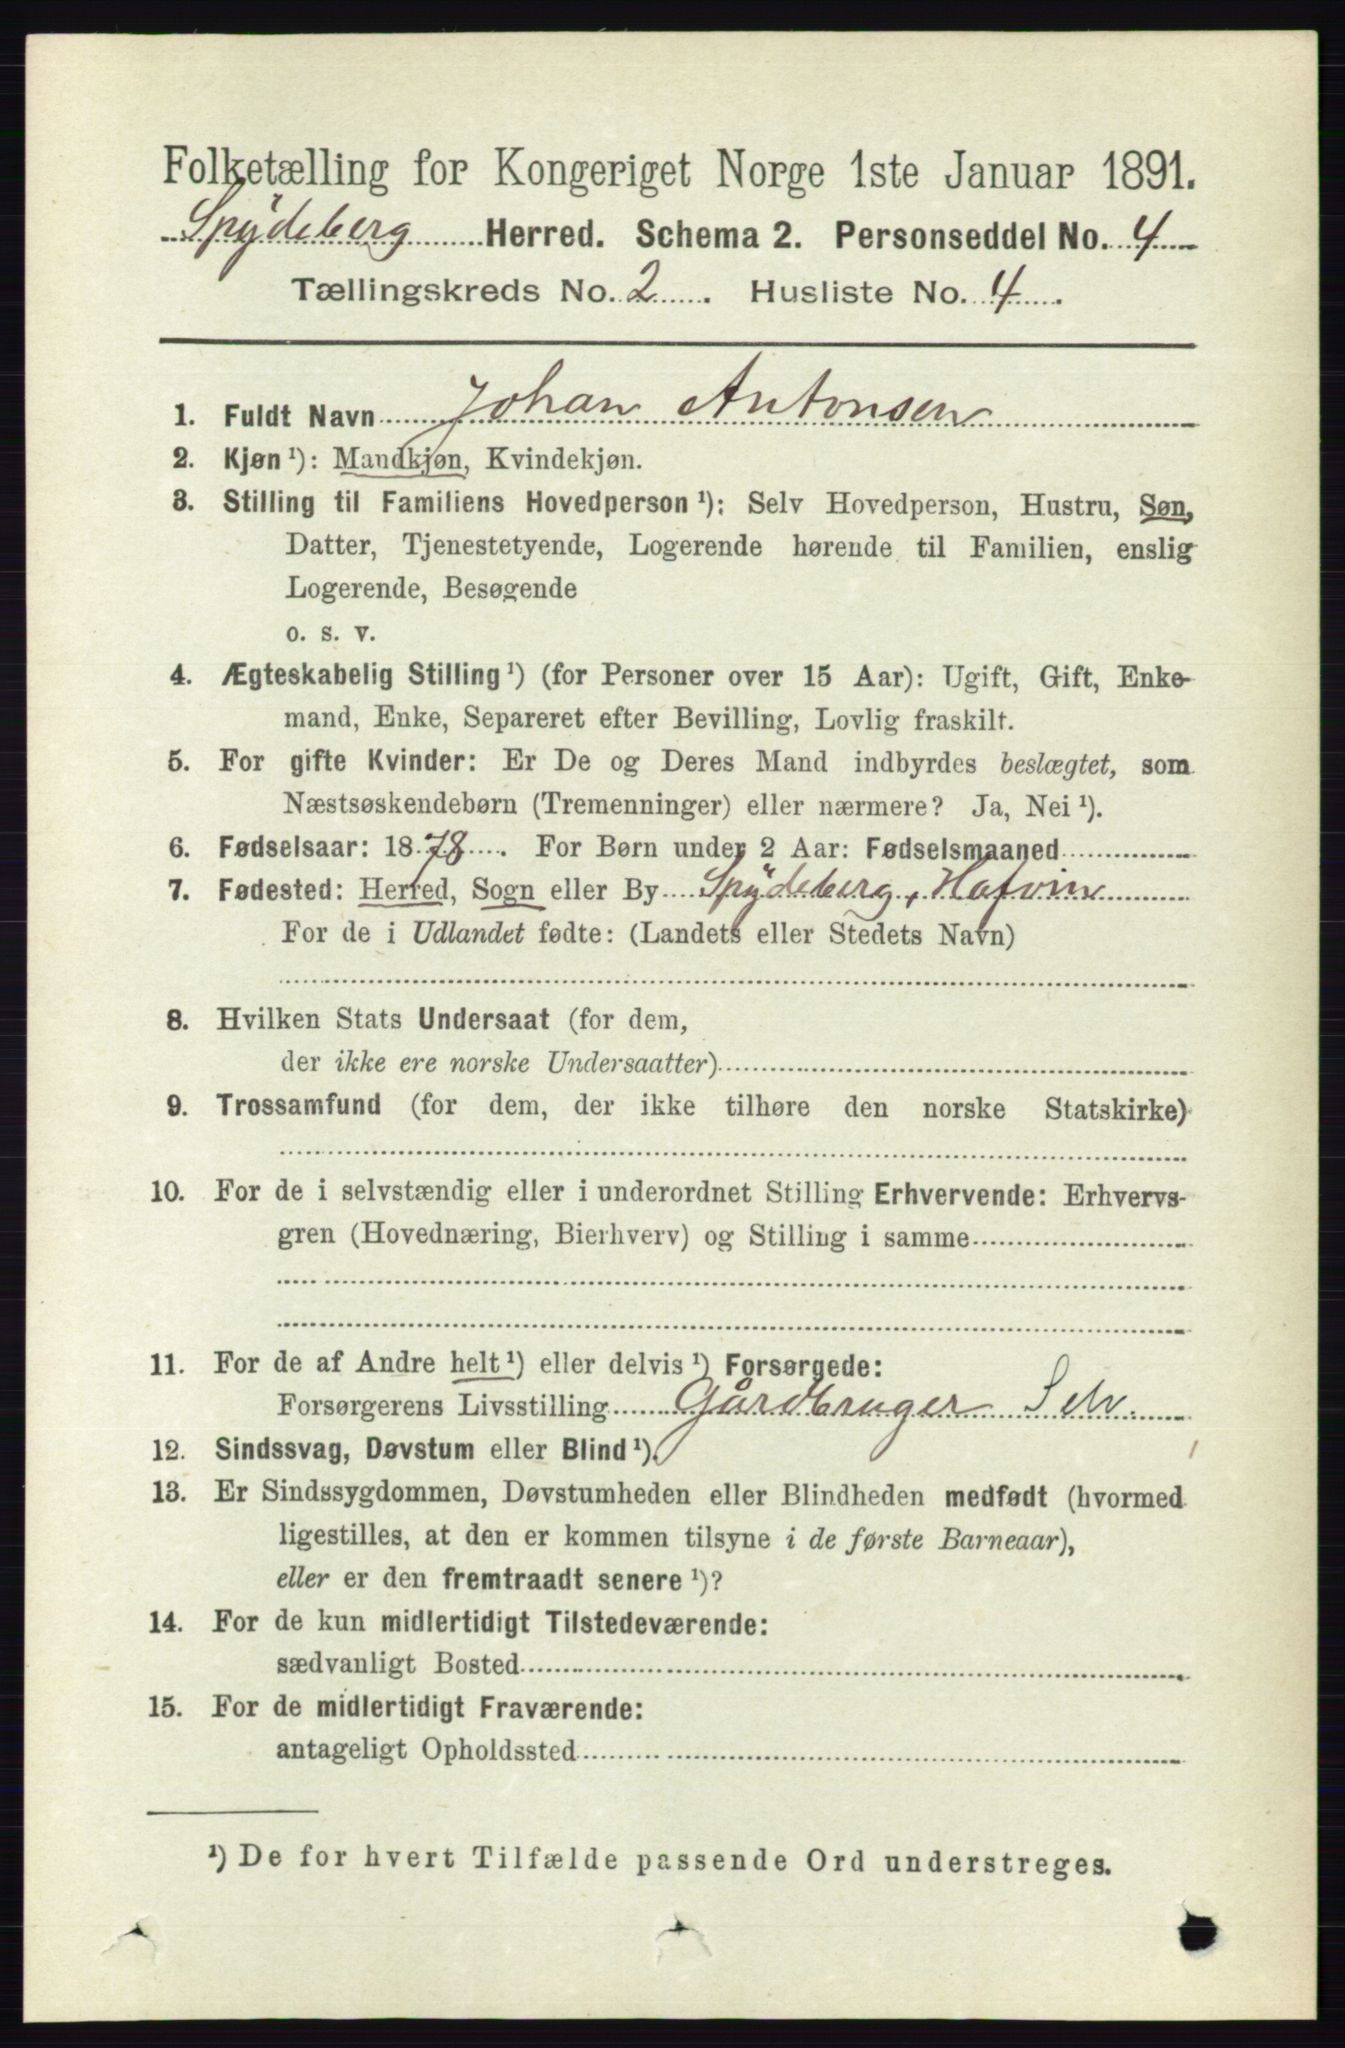 Folketælling for Kongeriget Norge 1ste Januar 1891.
Spÿdeberg Herred. Schema 2. Personseddel No. 4
Tællingskreds No. 2. Husliste No. 4.
1. Fuldt Navn Johan Antonsen
2. Kjøn ¹): Mandkjøn, Kvindekjøn.
3. Stilling til Familiens Hovedperson ¹): Selv Hovedperson, Hustru, Søn,
Datter, Tjenestetyende, Logerende hørende til Familien, enslig
Logerende, Besøgende
o. s. v.
4. Ægteskabelig Stilling ¹) (for Personer over 15 Aar): Ugift, Gift, Enke-
mand, Enke, Separeret efter Bevilling, Lovlig fraskilt.
5. For gifte Kvinder: Er De og Deres Mand indbyrdes beslægtet, som
Næstsøskendebørn (Tremenninger) eller nærmere? Ja, Nei ¹).
6. Fødselsaar: 1878. For Børn under 2 Aar: Fødselsmaaned
7. Fødested: Herred, Sogn eller By Spÿdeberg, Hofvin
For de i Udlandet fødte: (Landets eller Stedets Navn)
8. Hvilken Stats Undersaat (for dem,
der ikke ere norske Undersaatter)
9. Trossamfund (for dem, der ikke tilhøre den norske Statskirke)
10. For de i selvstændig eller i underordnet Stilling Erhvervende: Erhvervs-
gren (Hovednæring, Bierhverv) og Stilling i samme
11. For de af Andre helt ¹) eller delvis ¹) Forsørgede:
Forsørgerens Livsstilling Gårdbruger Selv.
12. Sindssvag, Døvstum eller Blind ¹).
13. Er Sindssygdommen, Døvstumheden eller Blindheden medfødt (hvormed
ligestilles, at den er kommen tilsyne i de første Barneaar),
eller er den fremtraadt senere ¹)?
14. For de kun midlertidigt Tilstedeværende:
sædvanligt Bosted
15. For de midlertidigt Fraværende:
antageligt Opholdssted
¹) De for hvert Tilfælde passende Ord understreges.